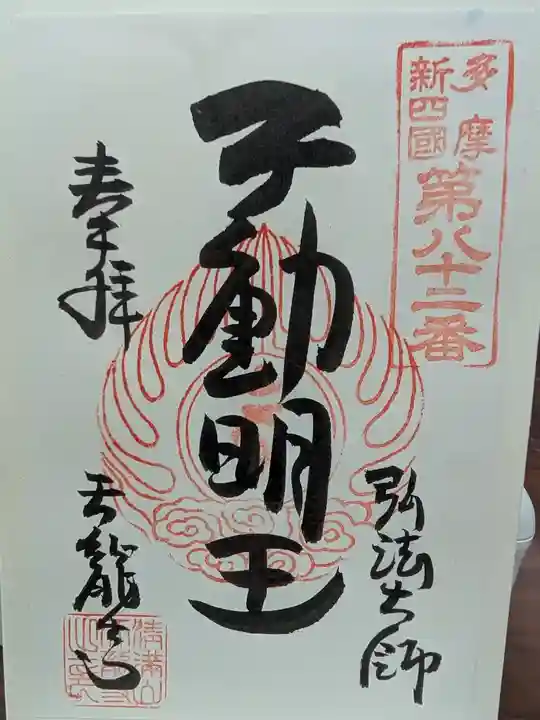 多摩
新四國
第八十二番
弘法大師
不動明王
奉拝